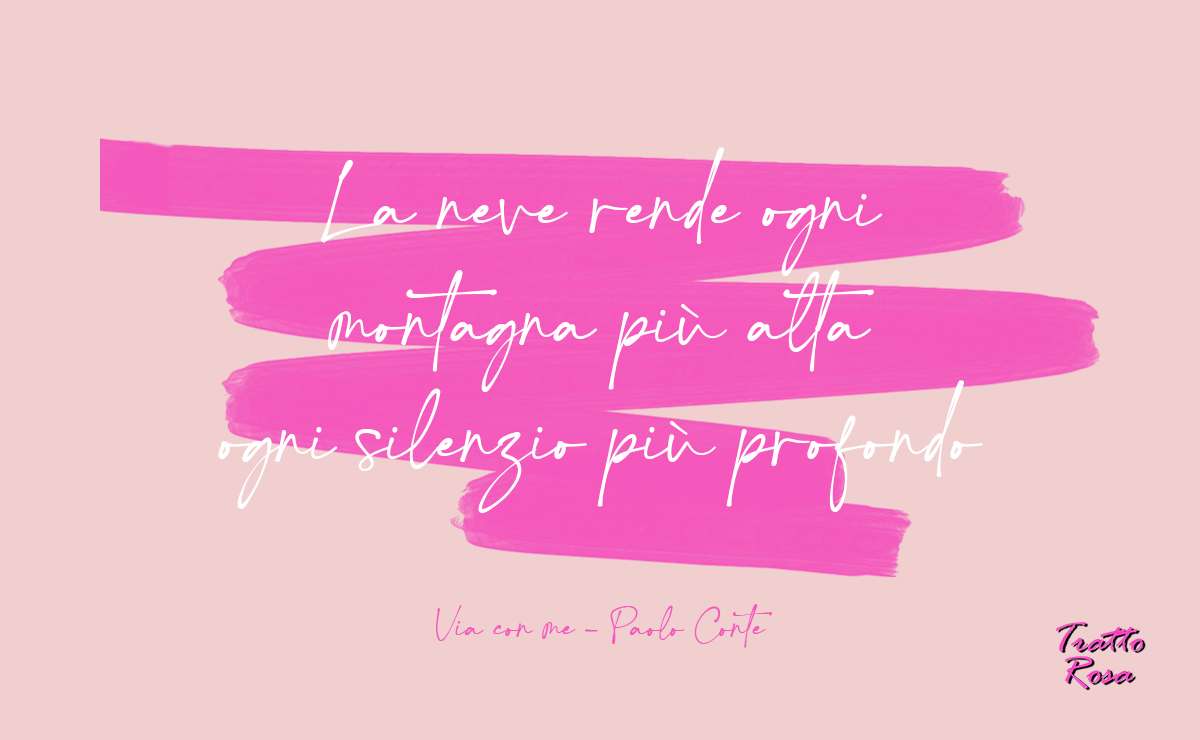 La neve rende ogni
montagna più alta
ogni silenzio più profondo
Via con me - Paolo Conte
Tratto
Rosa